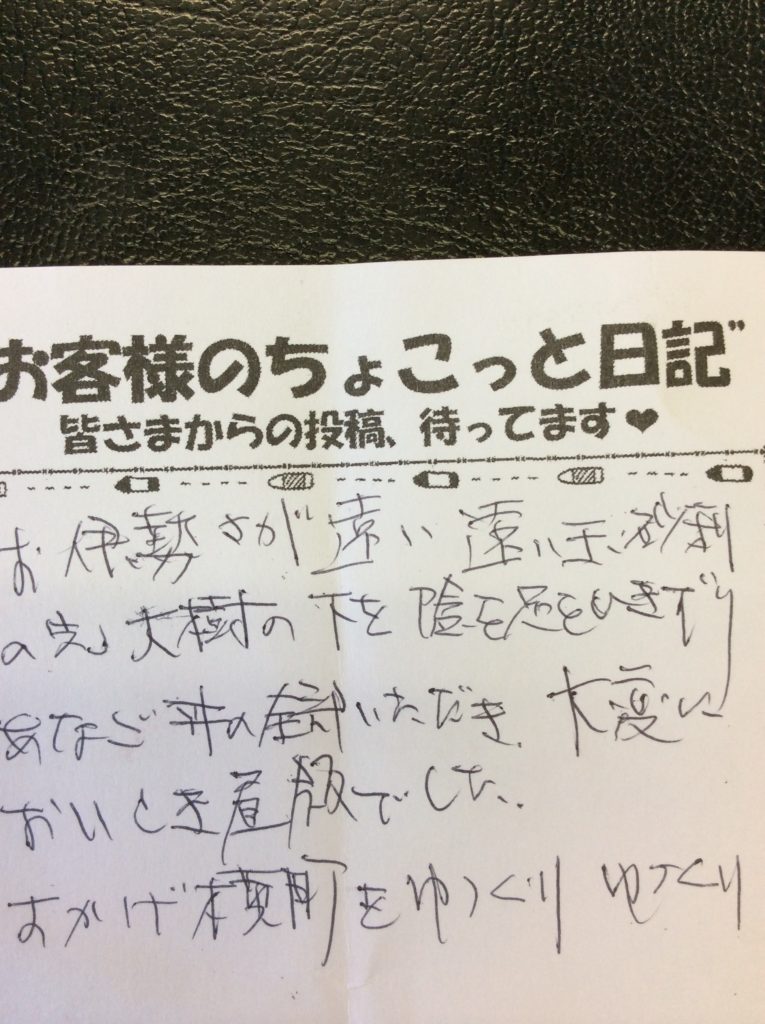 お客様のちょこっと日記"
皆さまからの投稿、待ってます♥
お伊勢さが遠い遠い玉砂利
の先、大樹の下を陰を足をひきずり
あなご丼の食いただき、大変に
おいしき昼飯でした。
おかげ横町をゆっくりゆっくり